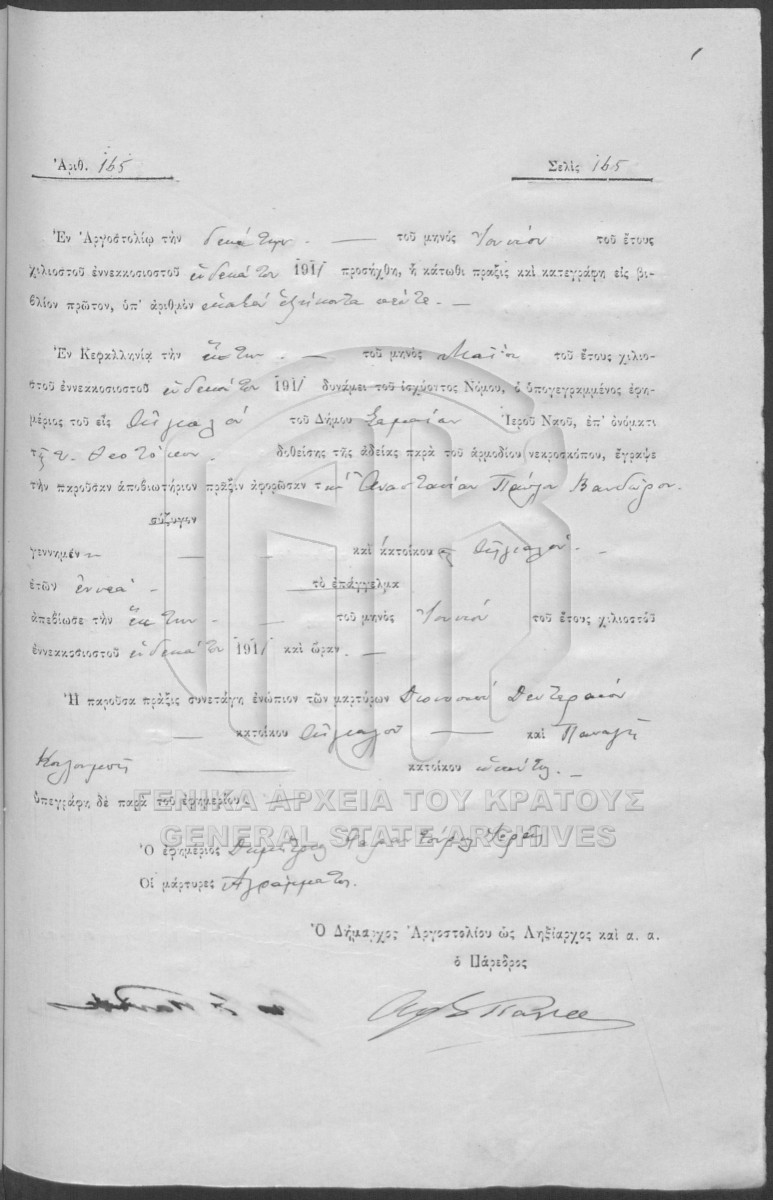 Ἀριθ. 165 Σελὶς 165
Ἐν Ἀργοστολίῳ τὴν δεκάτην — τοῦ μηνὸς Ἰουνίου τοῦ ἔτους
χιλιοστοῦ ἐννεακοσιοστοῦ ἑνδεκάτου 1911 προσήχθη, ἡ κάτωθι πρᾶξις καὶ κατεγράφη εἰς βι-
βλίον πρῶτον, ὑπ' ἀριθμὸν ἑκατὸν ἑξήκοντα πέντε. —
Ἐν Κεφαλληνίᾳ τὴν ἕκτην — τοῦ μηνὸς Μαΐου τοῦ ἔτους χιλιο-
στοῦ ἐννεακοσιοστοῦ ἑνδεκάτου 1911 δυνάμει τοῦ ἰσχύοντος Νόμου, ὁ ὑπογεγραμμένος ἐφη-
μέριος τοῦ εἰς τοῦ Δήμου Σαμαίων Ἱεροῦ Ναοῦ, ἐπ' ὀνόματι
τῆς Θεοτόκου. δοθείσης τῆς ἀδείας παρὰ τοῦ ἁρμοδίου νεκροσκόπου, ἔγραψε
τὴν παροῦσαν ἀποβιωτήριον πρᾶξιν ἀφορῶσαν τὴν Ἀναστασίαν
σύζυγον
γεννημέν — — — καὶ κάτοικον
ἐτῶν ἐννέα — τὸ ἐπάγγελμα
ἀπεβίωσε τὴν ἕκτην — τοῦ μηνὸς Ἰουνίου τοῦ ἔτους χιλιοστοῦ
ἐννεακοσιοστοῦ ἑνδεκάτου 1911 καὶ ὥραν —
Ἡ παροῦσα πρᾶξις συνετάγη ἐνώπιον τῶν μαρτύρων Διονυσίου
— κατοίκου — καὶ Παναγῆ
— κατοίκου —
ὑπεγράφη δὲ παρὰ τοῦ ἐφημερίου. —
ΓΕΝΙΚΑ ΑΡΧΕΙΑ ΤΟΥ ΚΡΑΤΟΥΣ
GENERAL STATE ARCHIVES
Ὁ ἐφημέριος Δημήτριος
Οἱ μάρτυρες Ἀγράμματοι.
Ὁ Δήμαρχος Ἀργοστολίου ὡς Ληξίαρχος καὶ α. α.
ὁ Πάρεδρος